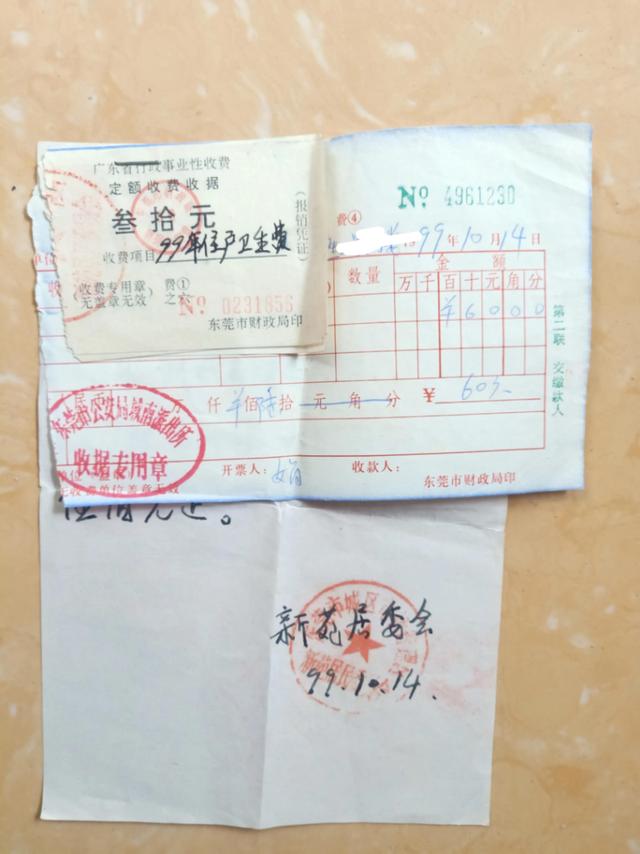 广东省行政事业性收费
定额收费收据
叁拾元
收费项目 99年住户卫生费
(收费专用章 费①
无盖章无效) 之六
No 0231856
东莞市财政局印
(报销凭证)
No 4961230
费④
99年10月14日
数量
金额
万千百十元角分
¥6000
仟¥佰陆拾元角分 ¥ 60.
开票人:
收款人:
东莞市财政局印
第二联 交缴款人
东莞市公安局城南派出所
收据专用章
新苑居委会
99.10.14.